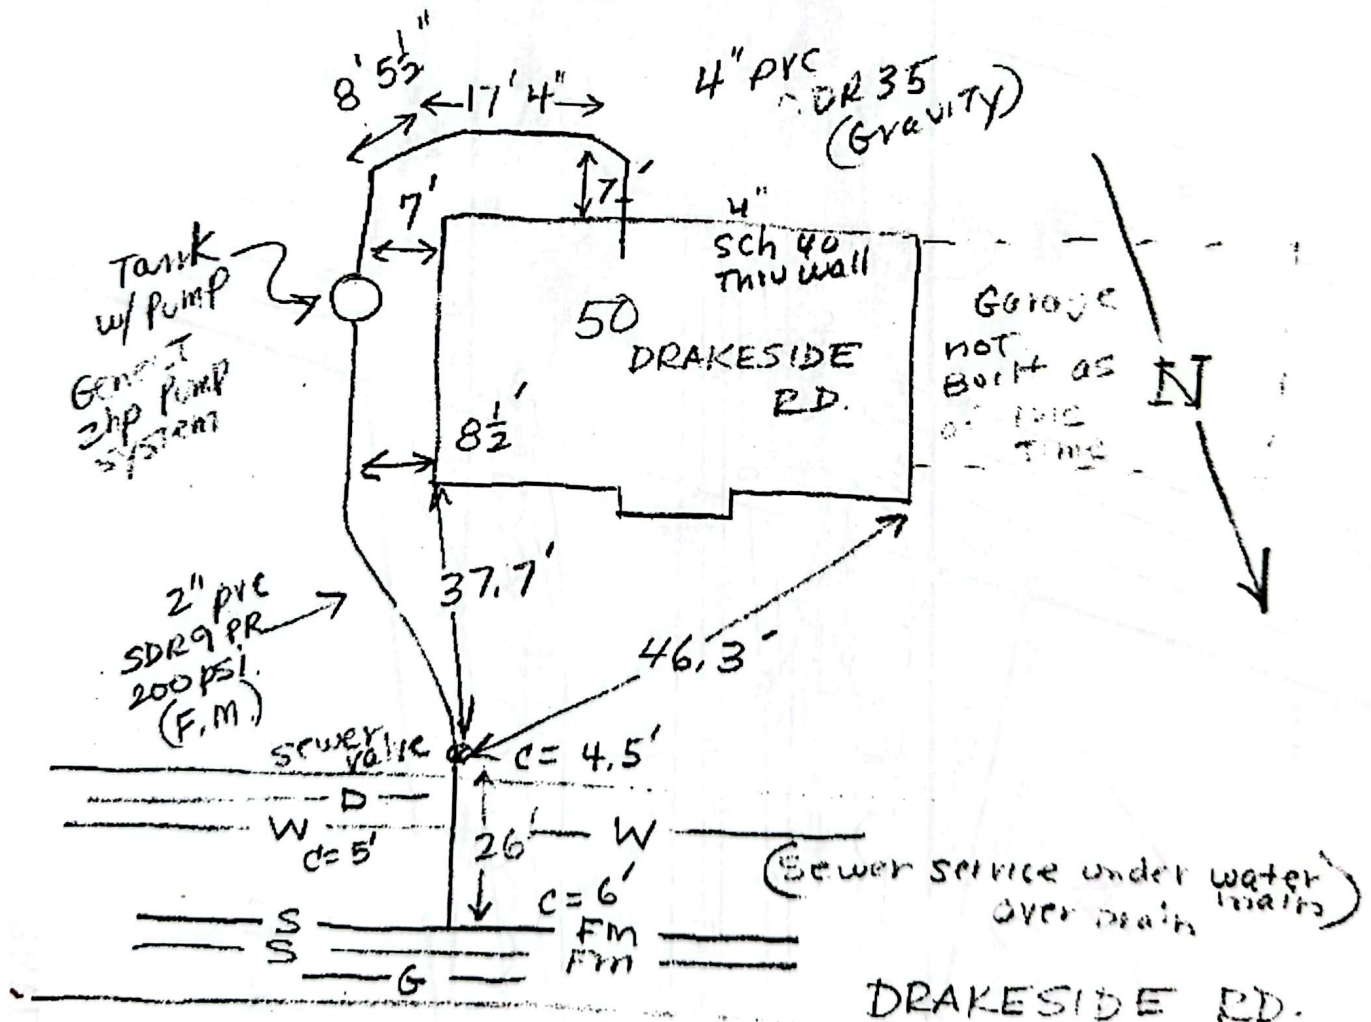 8' 5½"
17' 4"
4" PVC
SDR 35
(Gravity)
7'
7'
4"
Sch 40
Thru Wall
Tank
w/ Pump
2hp Pump
System
50
DRAKESIDE
RD.
Garage
not
Built as
Time
N
8½'
37.7'
2" PVC
SDR9 PR
200 PSI.
(F.M.)
46.3'
sewer
valve
C= 4.5'
D
W
C=5'
26'
W
(Sewer service under water
main
over Drain)
C=6'
S
FM
S
FM
G
DRAKESIDE RD.